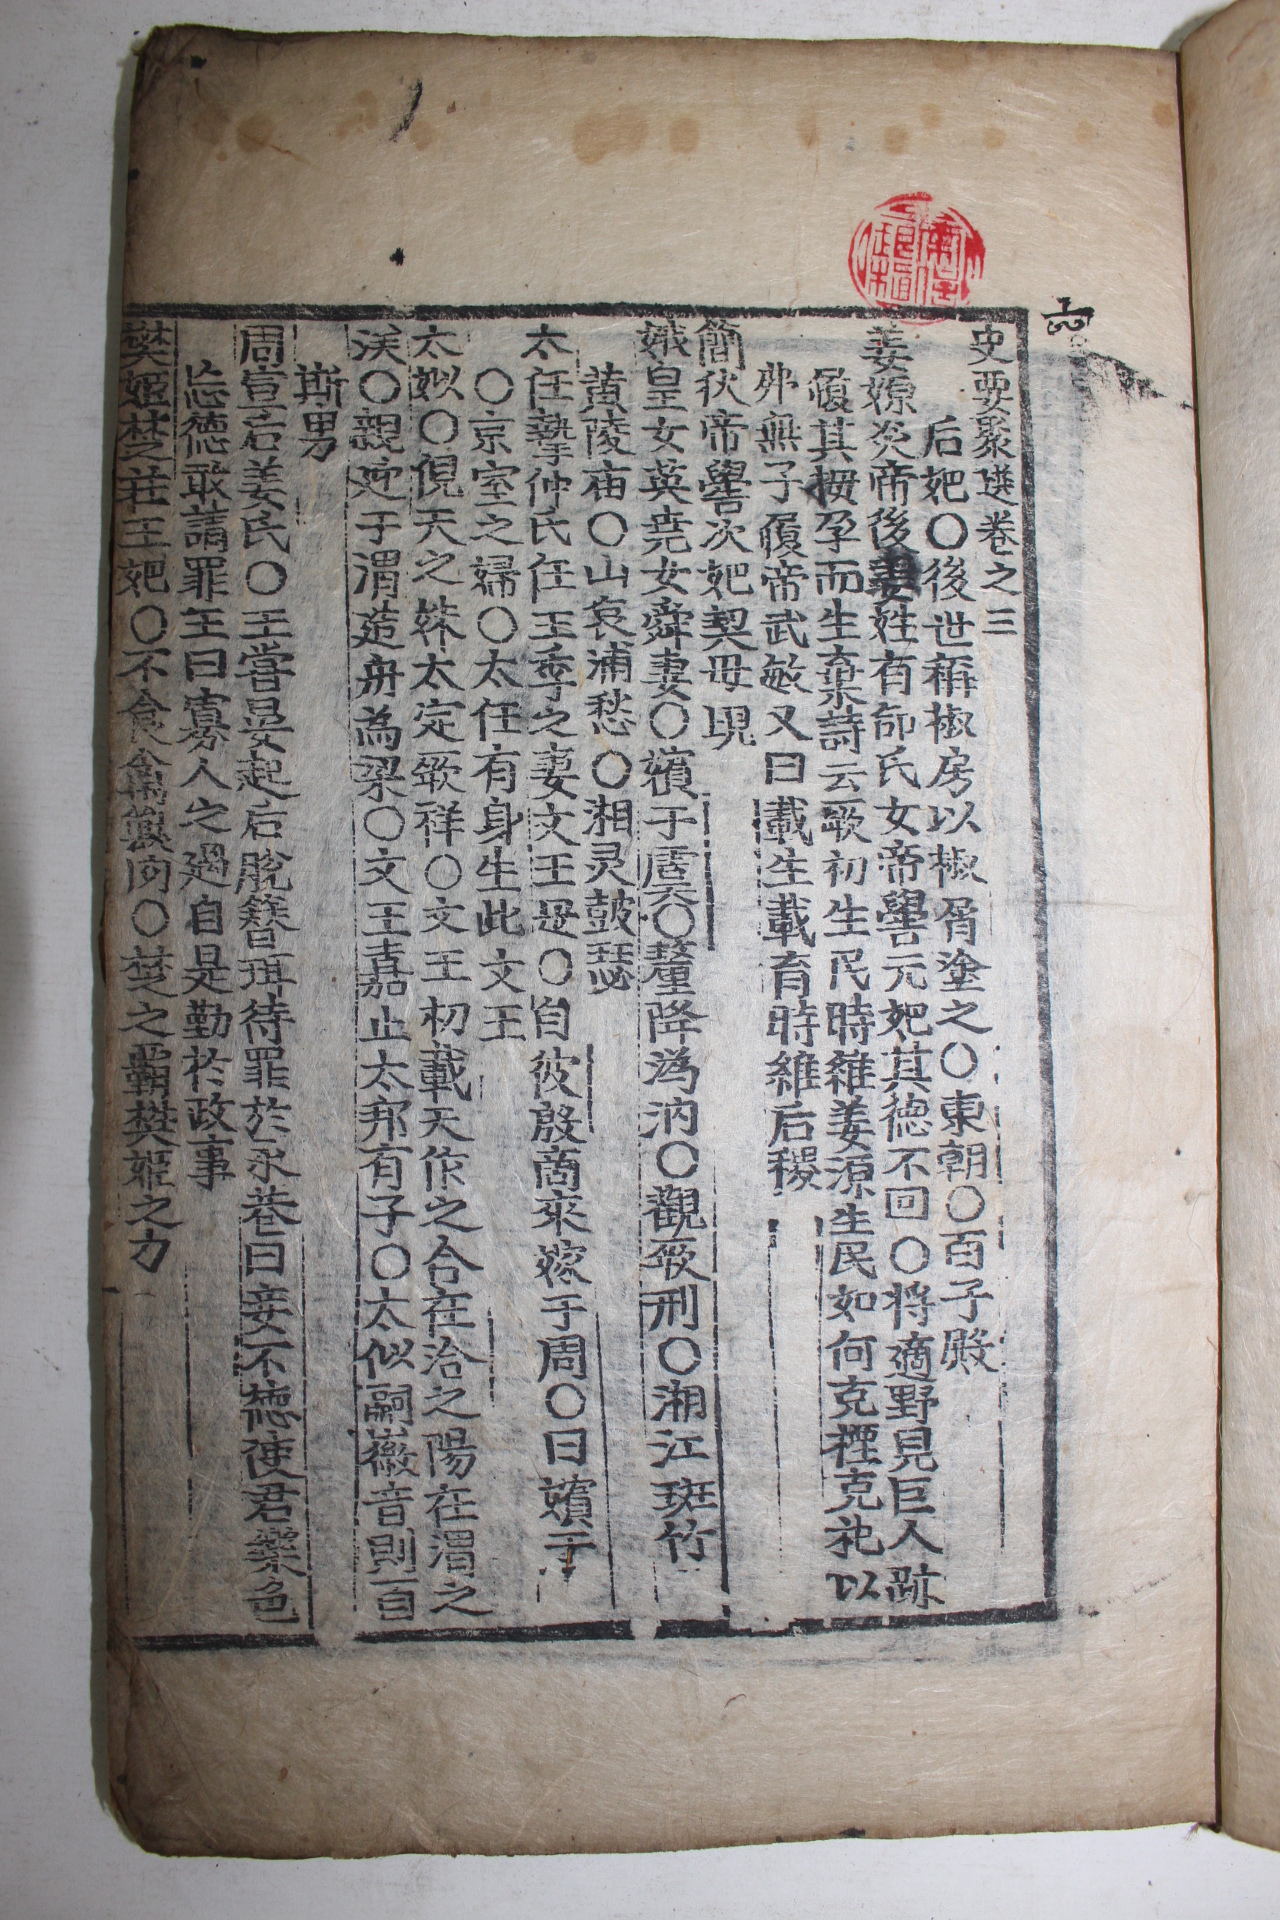 史要聚選卷之三
后妃〇後世稱椒房以椒屑塗之〇東朝〇百子殿
姜嫄炎帝後姜姓有邰氏女帝嚳元妃其德不回〇將適野見巨人跡
履其拇孕而生棄詩云厥初生民時維姜源生民如何克禋克祀以
弗無子履帝武敏又曰載生載育時維后稷
簡狄帝嚳次妃契母現
娥皇女英堯女舜妻〇嬪于虞〇釐降潙汭〇觀厥刑〇湘江斑竹
黃陵庙〇山哀浦愁〇湘灵鼓瑟
太任摯仲氏任王季之妻文王是〇自彼殷商來嫁于周〇曰嬪于
〇京室之婦〇太任有身生此文王
太姒〇俔天之妹太定厥祥〇文王初載天作之合在洽之陽在渭之
涘〇親迎于渭造舟為梁〇文王嘉止太邦有子〇太似嗣徽音則百
斯男
周宣后姜氏〇王嘗晏起后脫簪珥待罪於永巷曰妾不德使君樂色
忘德敢請罪王曰寡人之過自是勤於政事
樊姬楚莊王妃〇不食禽獸肉〇楚之覇樊姬之力